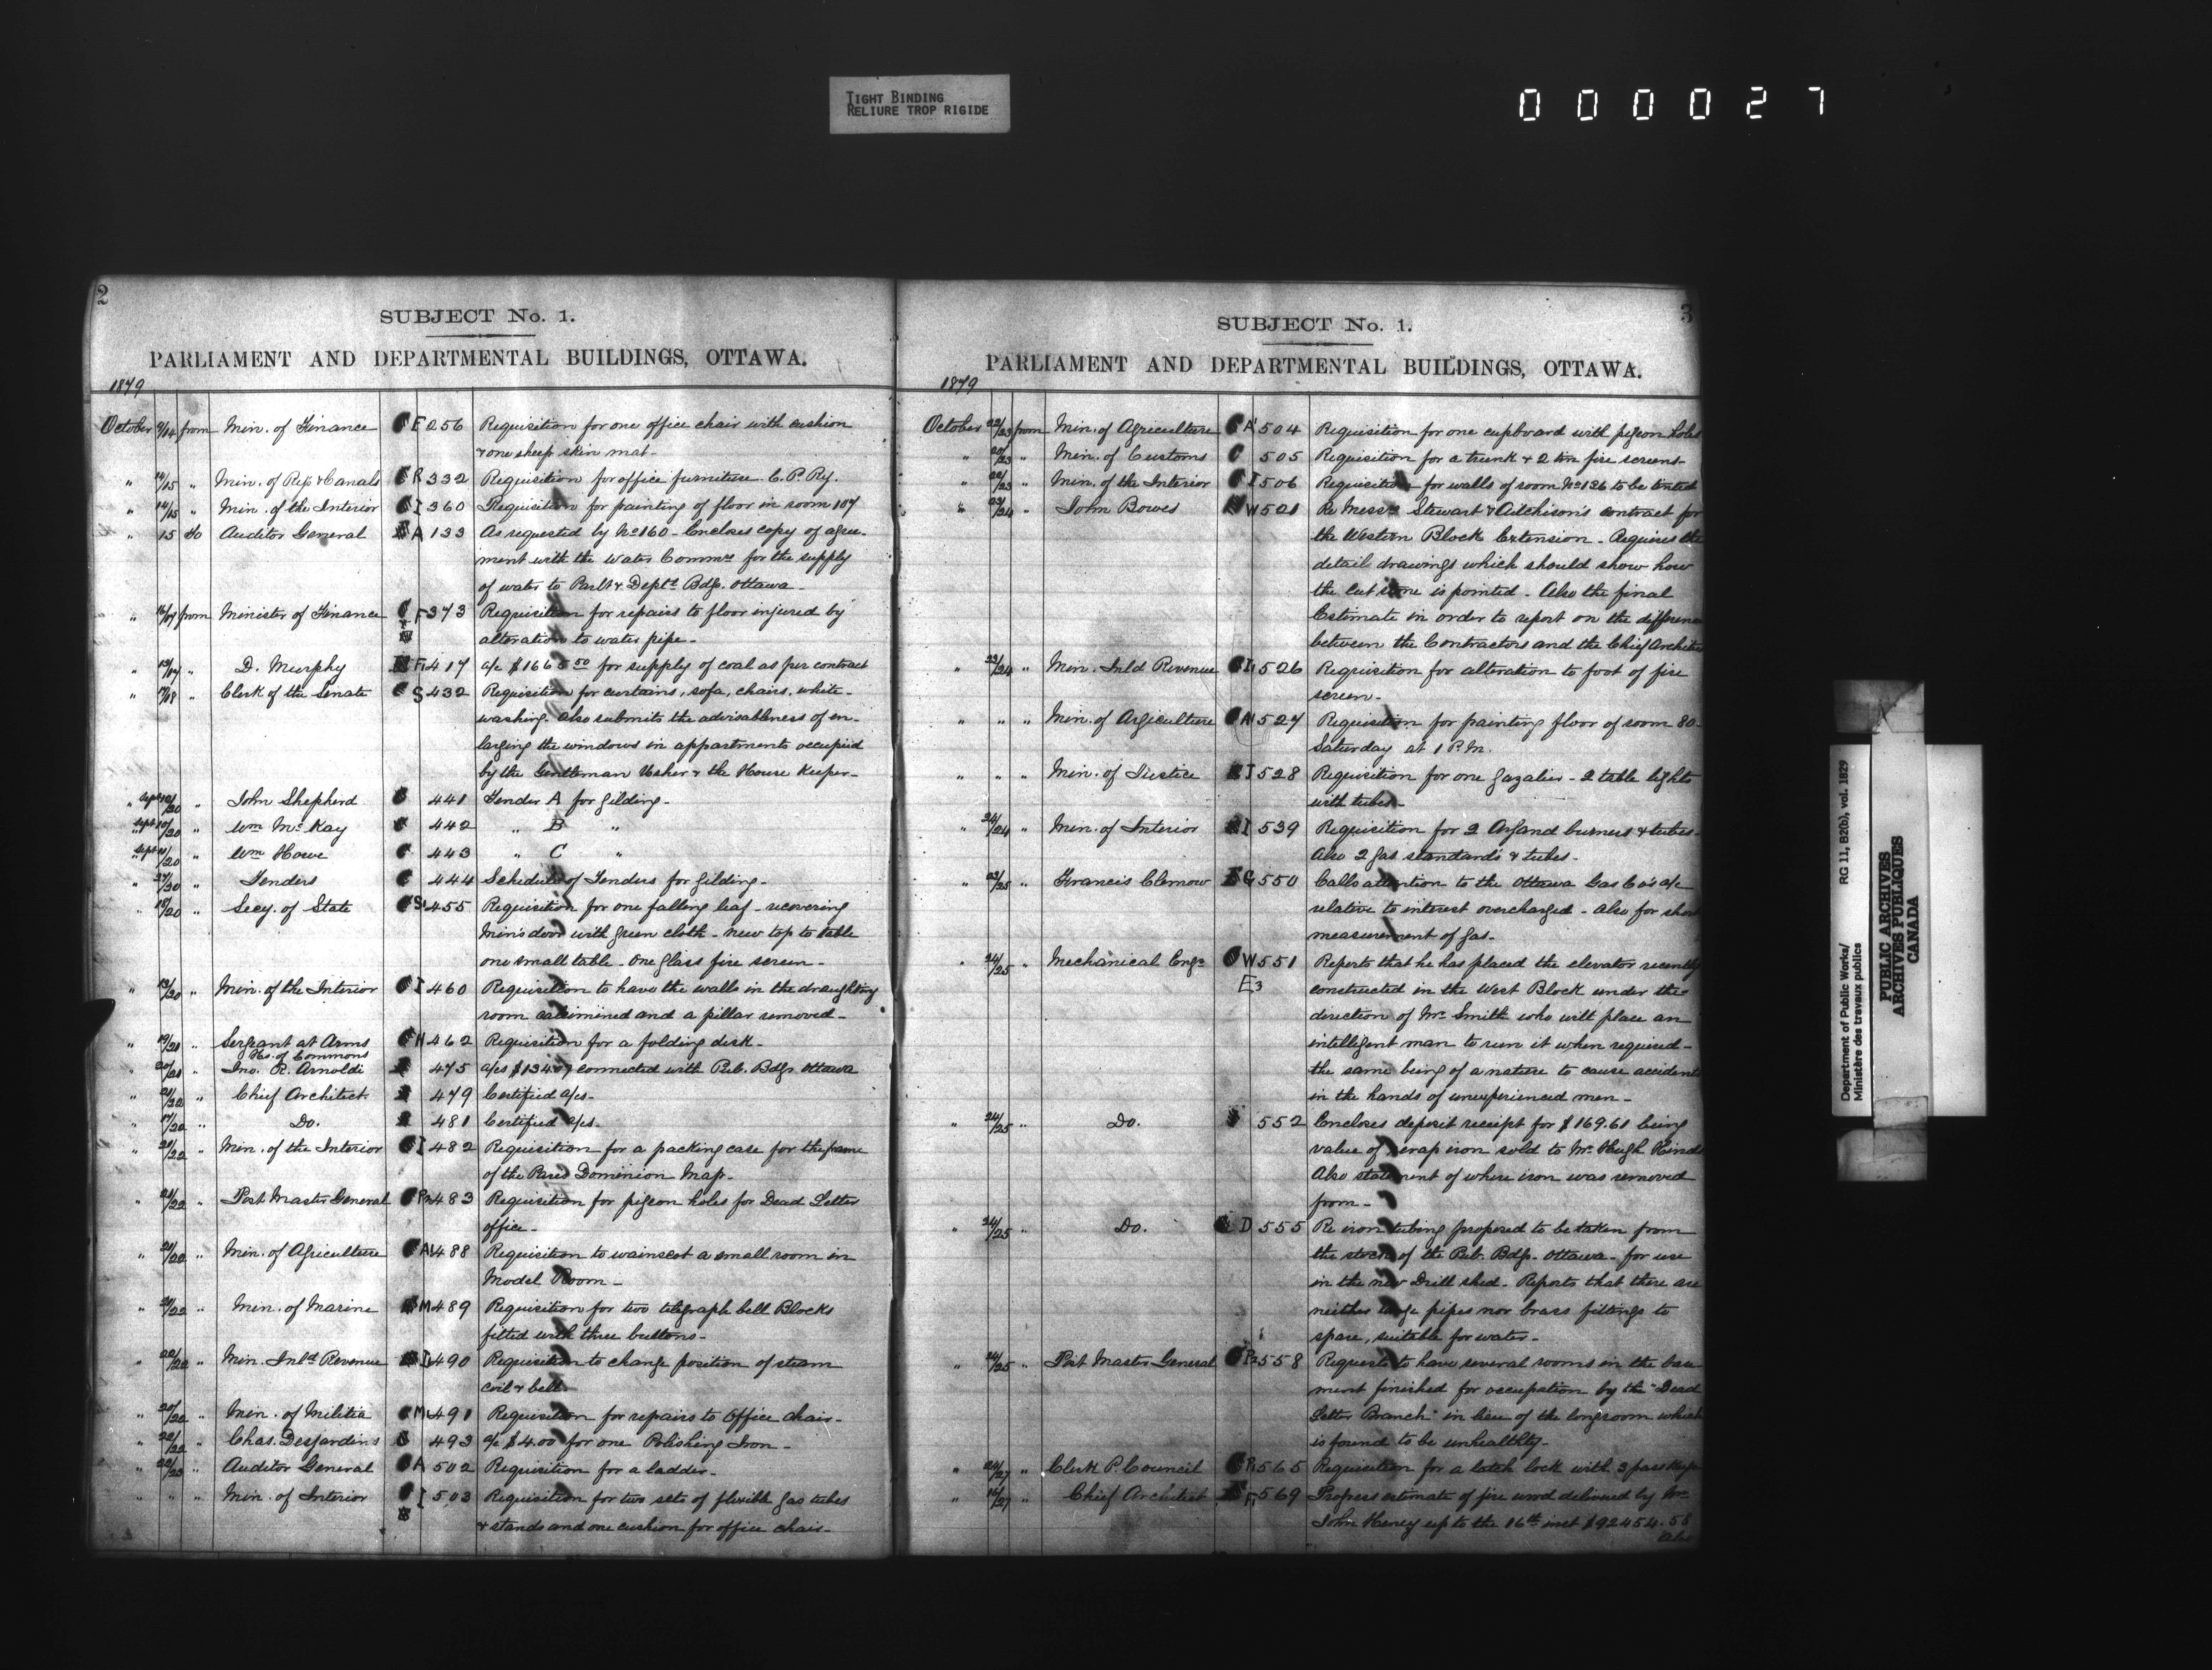 TIGHT BINDING
RELIURE TROP RIGIDE
000027
2
SUBJECT No. 1.
PARLIAMENT AND DEPARTMENTAL BUILDINGS, OTTAWA.
1879
October 9/14 from Min. of Finance F 256 Requisition for one office chair with cushion
& one sheep skin mat.
" 14/15 " Min. of Rys & Canals R 332 Requisition for office furniture C. P. Ry.
" 14/15 " Min. of the Interior I 360 Requisition for painting of floor in room 107
" 15 to Auditor General A 133 As requested by No 160 - Encloses copy of agree-
ment with the Water Commrs for the supply
of water to Parlt & Deptl Bdgs. Ottawa -
" 16/17 from Minister of Finance F 373 Requisition for repairs to floor injured by
alteration to water pipe -
" 13/17 " D. Murphy 417 a/c $1665.50 for supply of coal as per contract
" 17/18 " Clerk of the Senate S 432 Requisition for curtains, sofa, chairs, white-
washing. Also submits the advisableness of en-
larging the windows in appartments occupied
by the Gentleman Usher & the House Keeper -
" Sept /20 " John Shepherd 441 Tender A for gilding -
" Sept /20 " Wm McKay 442 " B "
" Sept /20 " Wm Howe 443 " C "
" /20 " Tenders 444 Schedule of Tenders for gilding -
" 18/20 " Secy. of State S 455 Requisition for one falling leaf - recovering
Min's door with green cloth - new top to table
one small table - One glass fire screen -
" 13/20 " Min. of the Interior I 460 Requisition to have the walls in the draughting
room calsimined and a pillar removed -
" 19/21 " Sergeant at Arms H 462 Requisition for a folding desk -
Hs. of Commons
" 20/21 " Jno. R. Arnoldi 475 a/cs connected with Pub. Bdgs Ottawa
" 21/22 " Chief Architect 479 Certified a/cs -
" 17/22 " Do. 481 Certified a/cs -
" 21/22 " Min. of the Interior I 482 Requisition for a packing case for the frame
of the Dominion Map -
" 21/22 " Post Master General 483 Requisition for pigeon holes for Dead Letter
office -
" 21/22 " Min. of Agriculture A 488 Requisition to wainscot a small room in
Model Room -
" 21/22 " Min. of Marine M 489 Requisition for two telegraph bell Blocks
fitted with three buttons -
" 22/22 " Min. Inld Revenue I 490 Requisition to change position of steam
coil & bell
" 20/22 " Min. of Militia M 491 Requisition for repairs to Office chair -
" 22/22 " Chas. Desjardins 493 a/c $4.00 for one Polishing Iron -
" 22/23 " Auditor General A 502 Requisition for a ladder -
" " " Min. of Interior I 503 Requisition for two sets of flexible gas tubes
& stands and one cushion for office chair -
3
SUBJECT No. 1.
PARLIAMENT AND DEPARTMENTAL BUILDINGS, OTTAWA.
1879
October 22/23 from Min. of Agriculture A 504 Requisition for one cupboard with pigeon holes
" 20/23 " Min. of Customs C 505 Requisition for a trunk & 2 tin fire screens -
" 22/23 " Min. of the Interior I 506 Requisition for walls of room No 126 to be tinted
" 23/24 " John Bowes W 521 Re Messrs Stewart & Aitchison's contract for
the Western Block Extension - Requires the
detail drawings which should show how
the cut stone is pointed - Also the final
Estimate in order to report on the difference
between the Contractors and the Chief Archite
" 23/24 " Min. Inld Revenue I 526 Requisition for alteration to foot of fire
screen -
" " " Min. of Agriculture A 527 Requisition for painting floor of room 80
Saturday at 1 P.M.
" " " Min. of Justice J 528 Requisition for one gazalier - 2 table lights
with tubes -
" 24/24 " Min. of Interior I 539 Requisition for 2 Argand burners & tubes -
Also 2 gas standards & tubes -
" 23/25 " Francis Clemow G 550 Calls attention to the Ottawa Gas Co's a/c
relative to interest overcharged - Also for short
measurement of gas -
" 24/25 Mechanical Engr W 551 Reports that he has placed the elevator recently
E3 constructed in the West Block under the
direction of Mr Smith who will place an
intelligent man to run it when required -
the same being of a nature to cause accident
in the hands of unexperienced men -
" 24/25 " Do. 552 Encloses deposit receipt for $169.61 being
value of scrap iron sold to Mr. Hugh
Also statement of where iron was removed
from -
" 24/25 " Do. D 555 Re iron tubing proposed to be taken from
the stock of the Pub. Bdgs. Ottawa - for use
in the new Drill shed - Reports that there are
neither large pipes nor brass fittings to
spare, suitable for water -
" 24/25 " Post Master General 558 Requests to have several rooms in the base-
ment finished for occupation by the "Dead
Letter Branch" in lieu of the long room which
is found to be unhealthy -
" 24/27 " Clerk P. Council 565 Requisition for a latch lock with 3 pass keys
" 16/27 " Chief Architect F 569 Progress estimate of fire wood delivered by Mr
John Heney up to the 16th inst
Also
Department of Public Works/ RG 11, B2(b), vol. 1829
Ministère des travaux publics
PUBLIC ARCHIVES
ARCHIVES PUBLIQUES
CANADA